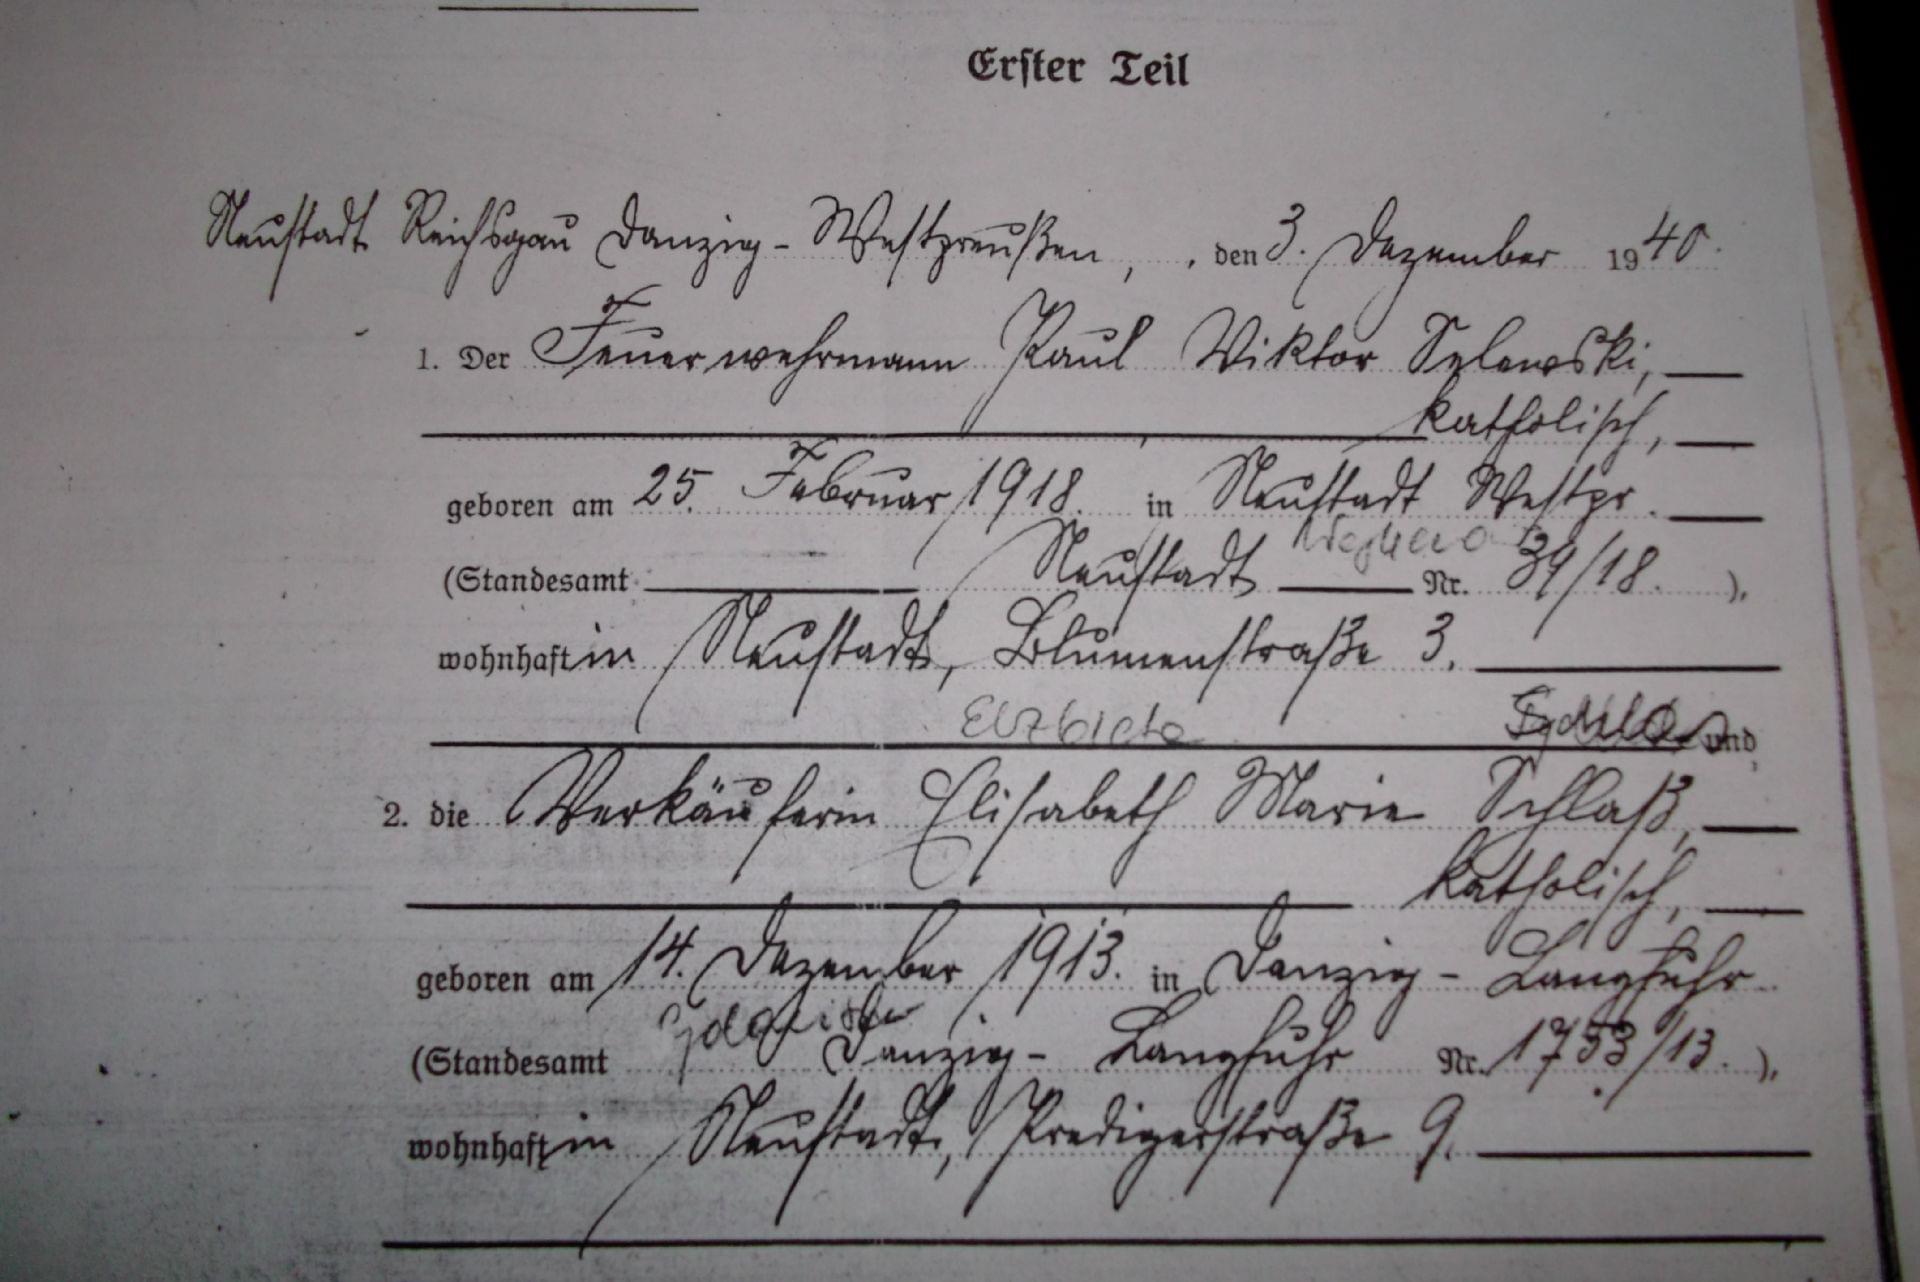 Erster Teil
Neustadt Reichsgau Danzig-Westpreußen, , den 3. Dezember 1940.
1. Der Feuerwehrmann Paul Viktor Selewski,
katholisch,
geboren am 25. Februar 1918. in Neustadt Westpr.
Wejherowo
(Standesamt Neustadt Nr. 39/18. ),
wohnhaft in Neustadt, Blumenstraße 3.
Elżbieta
und
2. die Verkäuferin Elisabeth Marie Schlaß,
katholisch,
geboren am 14. Dezember 1913. in Danzig-Langfuhr
(Standesamt Danzig-Langfuhr Nr. 1753/13. ),
wohnhaft in Neustadt, Predigerstraße 9.